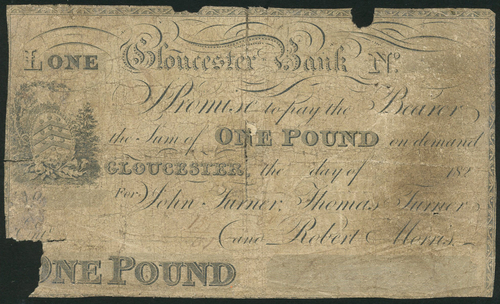 L ONE Gloucester Bank No.
I Promise to pay the Bearer
the Sum of ONE POUND on demand
GLOUCESTER, the day of 18
For John Turner, Thomas Turner
and Robert Morris.
ONE POUND